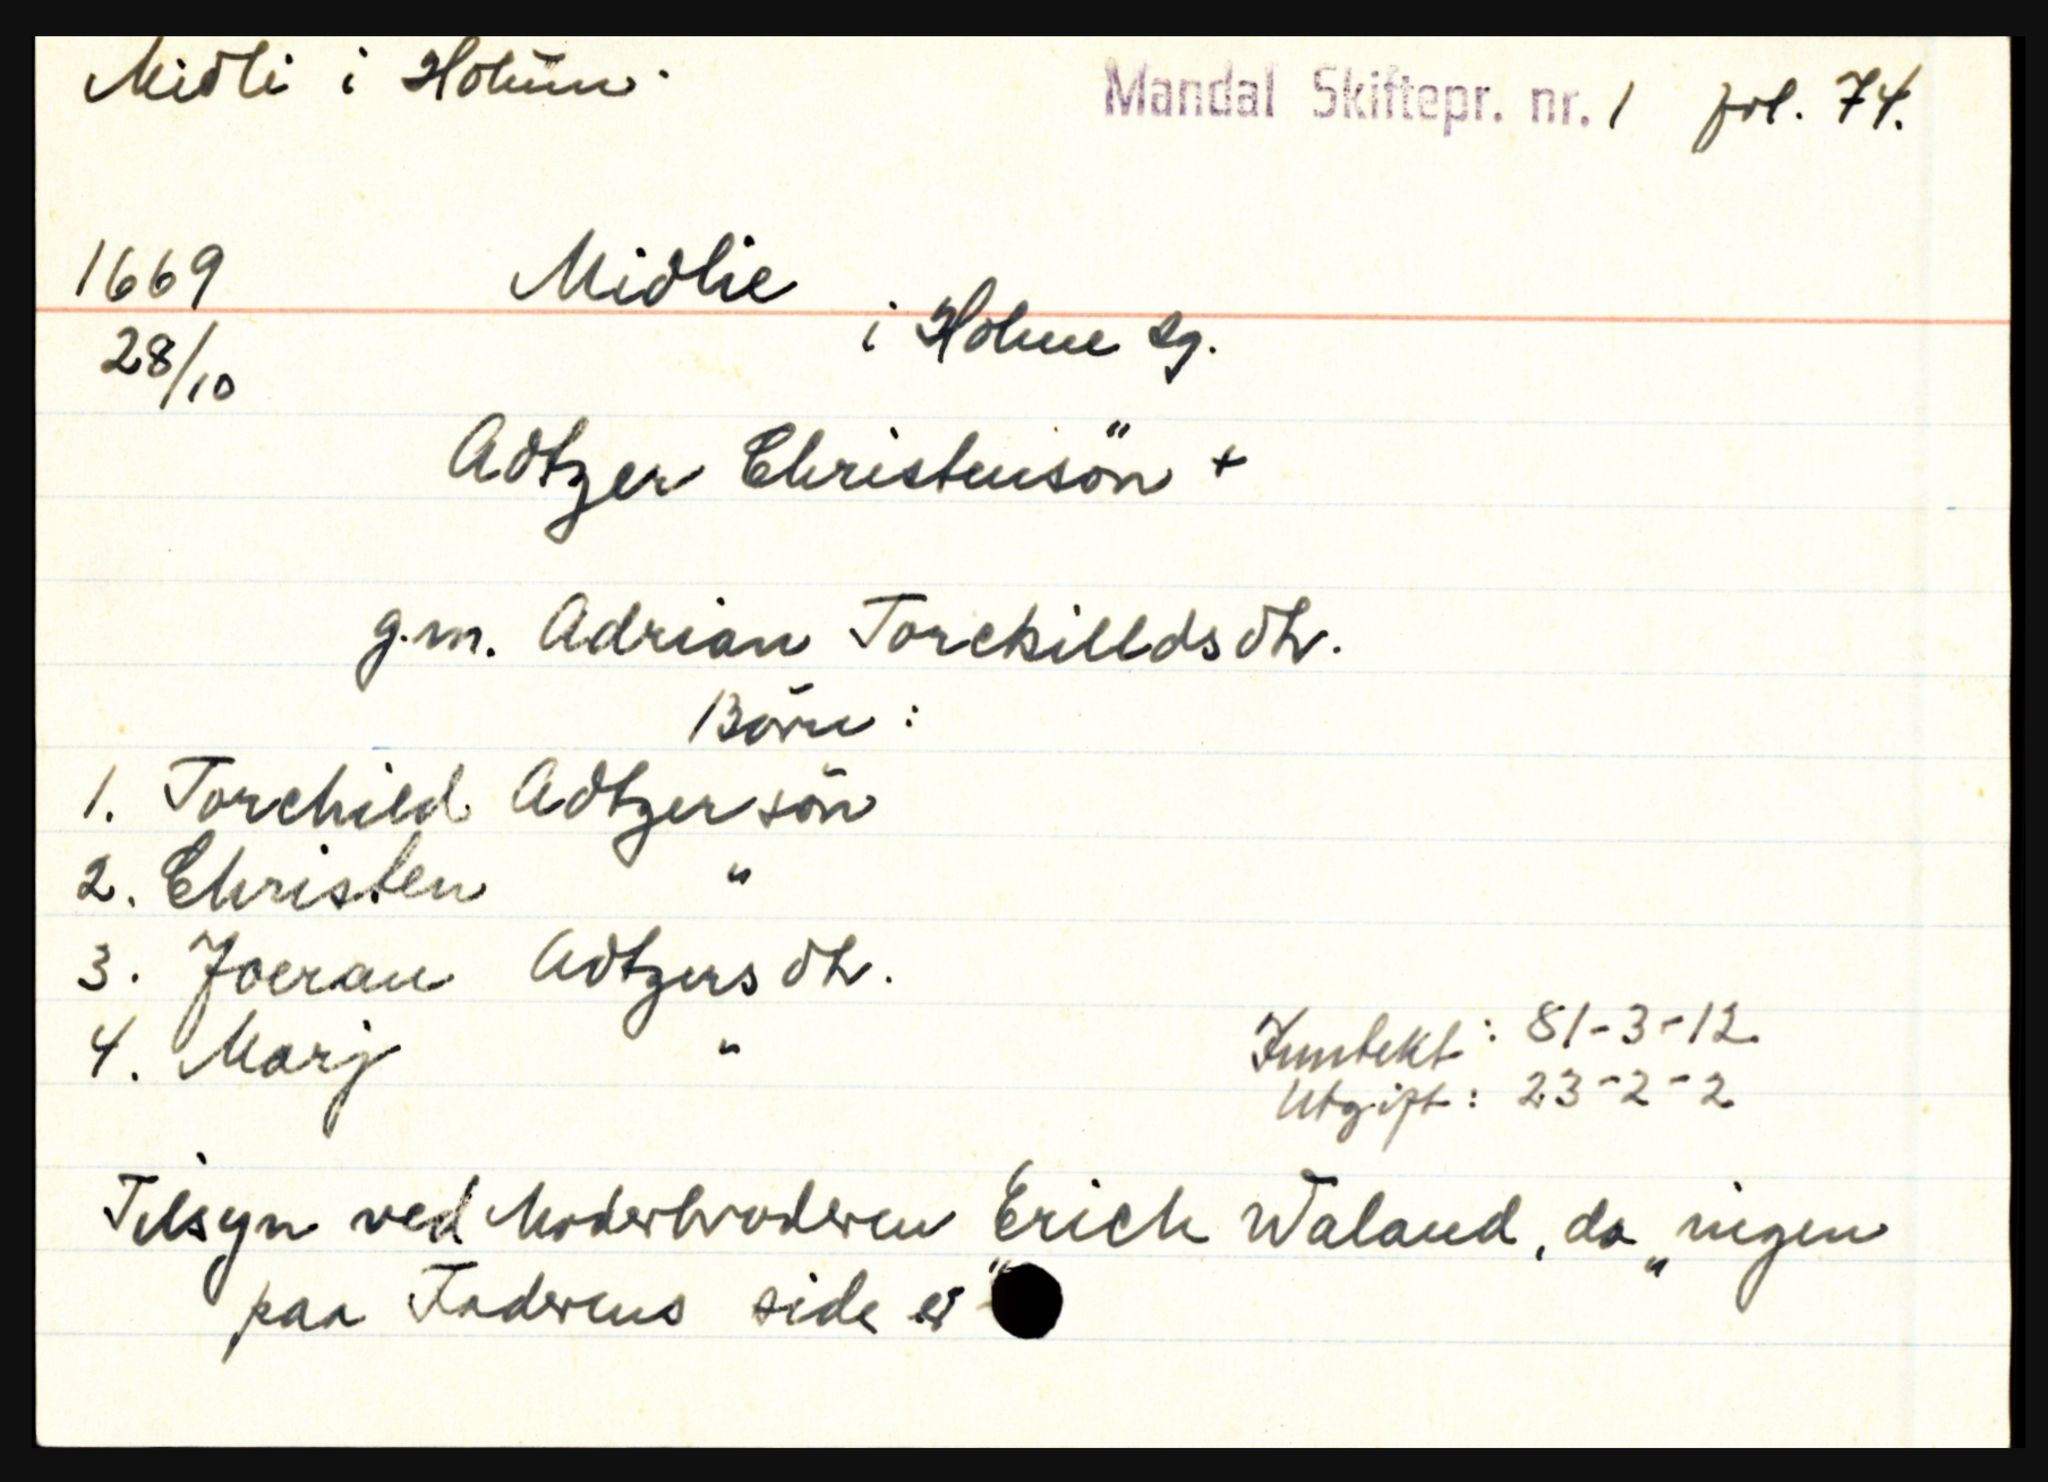 Midli i Holum.
Mandal Skiftepr. nr. 1 fol. 74.
1669
28/10
Midlie
i Holme sg.
Adtzer Christensön +
g.m. Adrian Torckilldsdtr.
Börn:
1. Torchild Adtzersön
2. Christen "
3. Joeran Adtzersdtr.
4. Marj "
Inntekt: 81-3-12
Utgift: 23-2-2
Tilsyn ved Moderbroderen Erich Waland, da "ingen
paa Faderens side er"